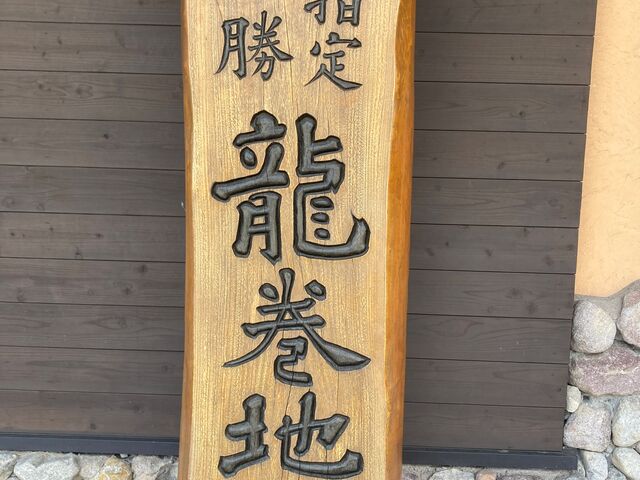 指定
勝
龍巻地